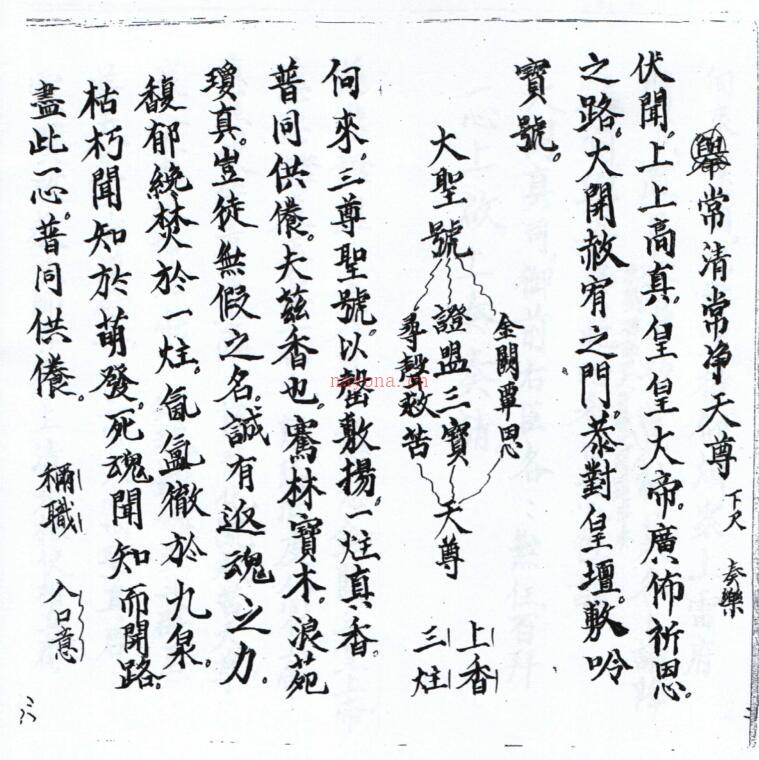 舉常清常净天尊 下尺 奏樂
伏聞。上上高真。皇皇大帝。廣佈祈恩。
之路。大開赦宥之門。恭對皇壇。敷吟
寶號。
大聖號
金闕覃恩
證盟三寶
尋聲救苦
天尊
上香
三炷
向來。三尊聖號。以罄敷揚。一炷真香。
普同供養。夫茲香也。騫林寶木。浪苑
瓊真。豈徒無假之名。誠有返魂之力。
馥郁纔焚於一炷。氤氳徹於九泉。
枯朽聞知於萌發。死魂聞知而開路。
盡此一心。普同供養。
稱職 入口意
nayona.cn